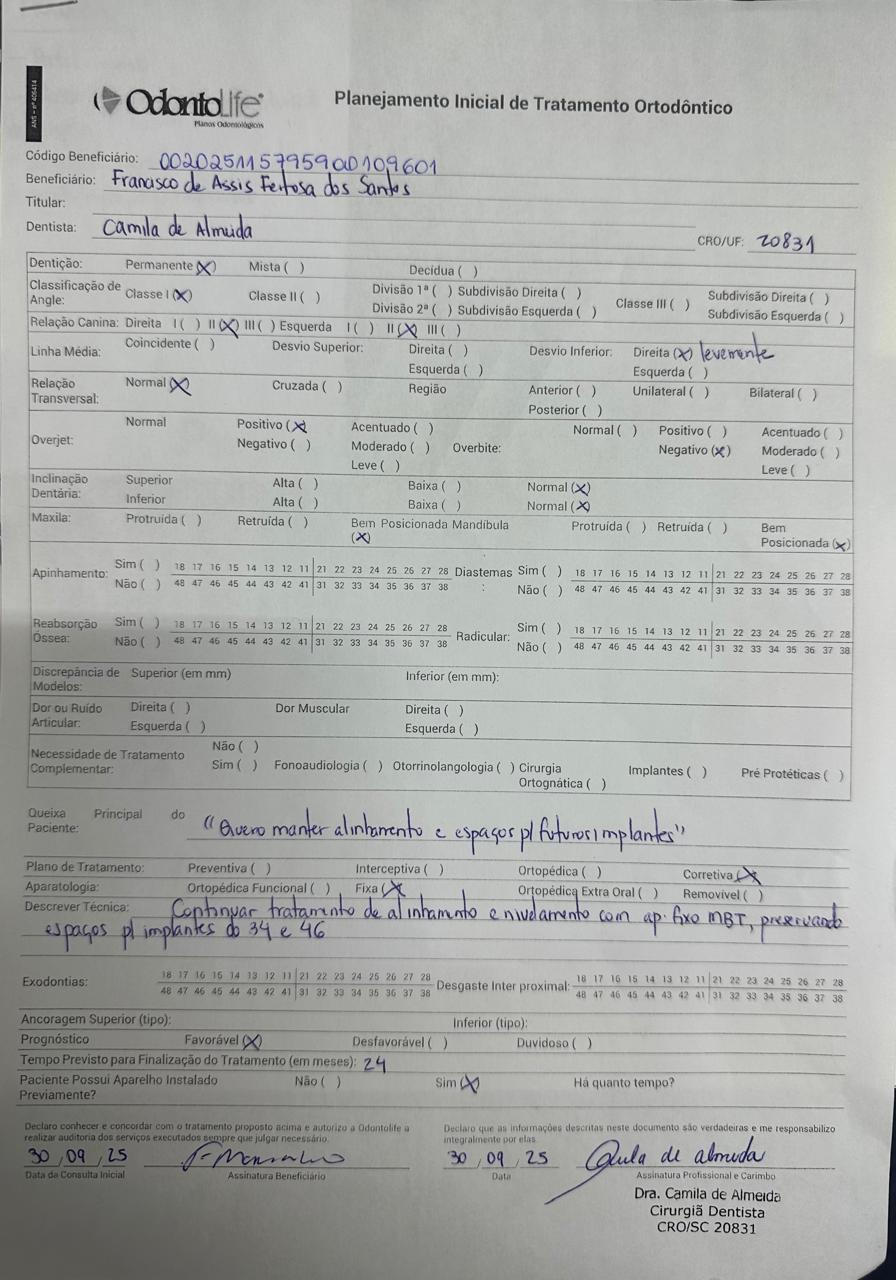 ANS - nº 406414
OdontoLife
Planos Odontológicos
Planejamento Inicial de Tratamento Ortodôntico
Código Beneficiário: 00202511579590109601
Beneficiário: Francisco de Assis Feitosa dos Santos
Titular:
Dentista: Camila de Almeida CRO/UF: 20831
Dentição: Permanente (X) Mista ( ) Decídua ( )
Classificação de Angle: Classe I (X) Classe II ( ) Divisão 1ª ( ) Subdivisão Direita ( ) Classe III ( ) Subdivisão Direita ( )
Divisão 2ª ( ) Subdivisão Esquerda ( ) Subdivisão Esquerda ( )
Relação Canina: Direita I ( ) II (X) III ( ) Esquerda I ( ) II (X) III ( )
Linha Média: Coincidente ( ) Desvio Superior: Direita ( ) Desvio Inferior: Direita (X) levemente
Esquerda ( ) Esquerda ( )
Relação Transversal: Normal (X) Cruzada ( ) Região Anterior ( ) Unilateral ( ) Bilateral ( )
Posterior ( )
Overjet: Normal Positivo (X) Acentuado ( ) Overbite: Normal ( ) Positivo ( ) Acentuado ( )
Negativo ( ) Moderado ( ) Negativo (X) Moderado ( )
Leve ( ) Leve ( )
Inclinação Dentária: Superior Alta ( ) Baixa ( ) Normal (X)
Inferior Alta ( ) Baixa ( ) Normal (X)
Maxila: Protruída ( ) Retruída ( ) Bem Posicionada (X) Mandíbula Protruída ( ) Retruída ( ) Bem Posicionada (X)
Apinhamento: Sim ( ) 18 17 16 15 14 13 12 11 21 22 23 24 25 26 27 28 Diastemas : Sim ( ) 18 17 16 15 14 13 12 11 21 22 23 24 25 26 27 28
Não ( ) 48 47 46 45 44 43 42 41 31 32 33 34 35 36 37 38 Não ( ) 48 47 46 45 44 43 42 41 31 32 33 34 35 36 37 38
Reabsorção Óssea: Sim ( ) 18 17 16 15 14 13 12 11 21 22 23 24 25 26 27 28 Radicular: Sim ( ) 18 17 16 15 14 13 12 11 21 22 23 24 25 26 27 28
Não ( ) 48 47 46 45 44 43 42 41 31 32 33 34 35 36 37 38 Não ( ) 48 47 46 45 44 43 42 41 31 32 33 34 35 36 37 38
Discrepância de Modelos: Superior (em mm) Inferior (em mm):
Dor ou Ruído Articular: Direita ( ) Dor Muscular Direita ( )
Esquerda ( ) Esquerda ( )
Necessidade de Tratamento Complementar: Não ( )
Sim ( ) Fonoaudiologia ( ) Otorrinolangologia ( ) Cirurgia Ortognática ( ) Implantes ( ) Pré Protéticas ( )
Queixa Principal do Paciente: "Quero manter alinhamento e espaços p/ futuros implantes"
Plano de Tratamento: Preventiva ( ) Interceptiva ( ) Ortopédica ( ) Corretiva (X)
Aparatologia: Ortopédica Funcional ( ) Fixa (X) Ortopédica Extra Oral ( ) Removível ( )
Descrever Técnica: Continuar tratamento de alinhamento e nivelamento com ap. fixo MBT, preservando
espaços p/ implantes do 34 e 46
Exodontias: 18 17 16 15 14 13 12 11 21 22 23 24 25 26 27 28 Desgaste Inter proximal: 18 17 16 15 14 13 12 11 21 22 23 24 25 26 27 28
48 47 46 45 44 43 42 41 31 32 33 34 35 36 37 38 48 47 46 45 44 43 42 41 31 32 33 34 35 36 37 38
Ancoragem Superior (tipo): Inferior (tipo):
Prognóstico Favorável (X) Desfavorável ( ) Duvidoso ( )
Tempo Previsto para Finalização do Tratamento (em meses): 24
Paciente Possui Aparelho Instalado Previamente? Não ( ) Sim (X) Há quanto tempo?
Declaro conhecer e concordar com o tratamento proposto acima e autorizo a Odontolife a
realizar auditoria dos serviços executados sempre que julgar necessário.
Declaro que as informações descritas neste documento são verdadeiras e me responsabilizo
integralmente por elas
30 , 09 , 25
Data da Consulta Inicial Assinatura Beneficiário
30 , 09 , 25 de almeida
Data Assinatura Profissional e Carimbo
Dra. Camila de Almeida
Cirurgiã Dentista
CRO/SC 20831